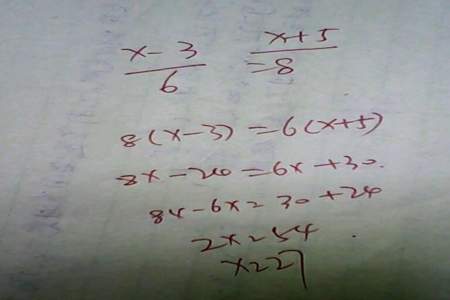 x-3/6 = x+5/8
8(x-3) = 6(x+5)
8x-24 = 6x+30.
8x-6x = 30+24
2x = 54
x = 27